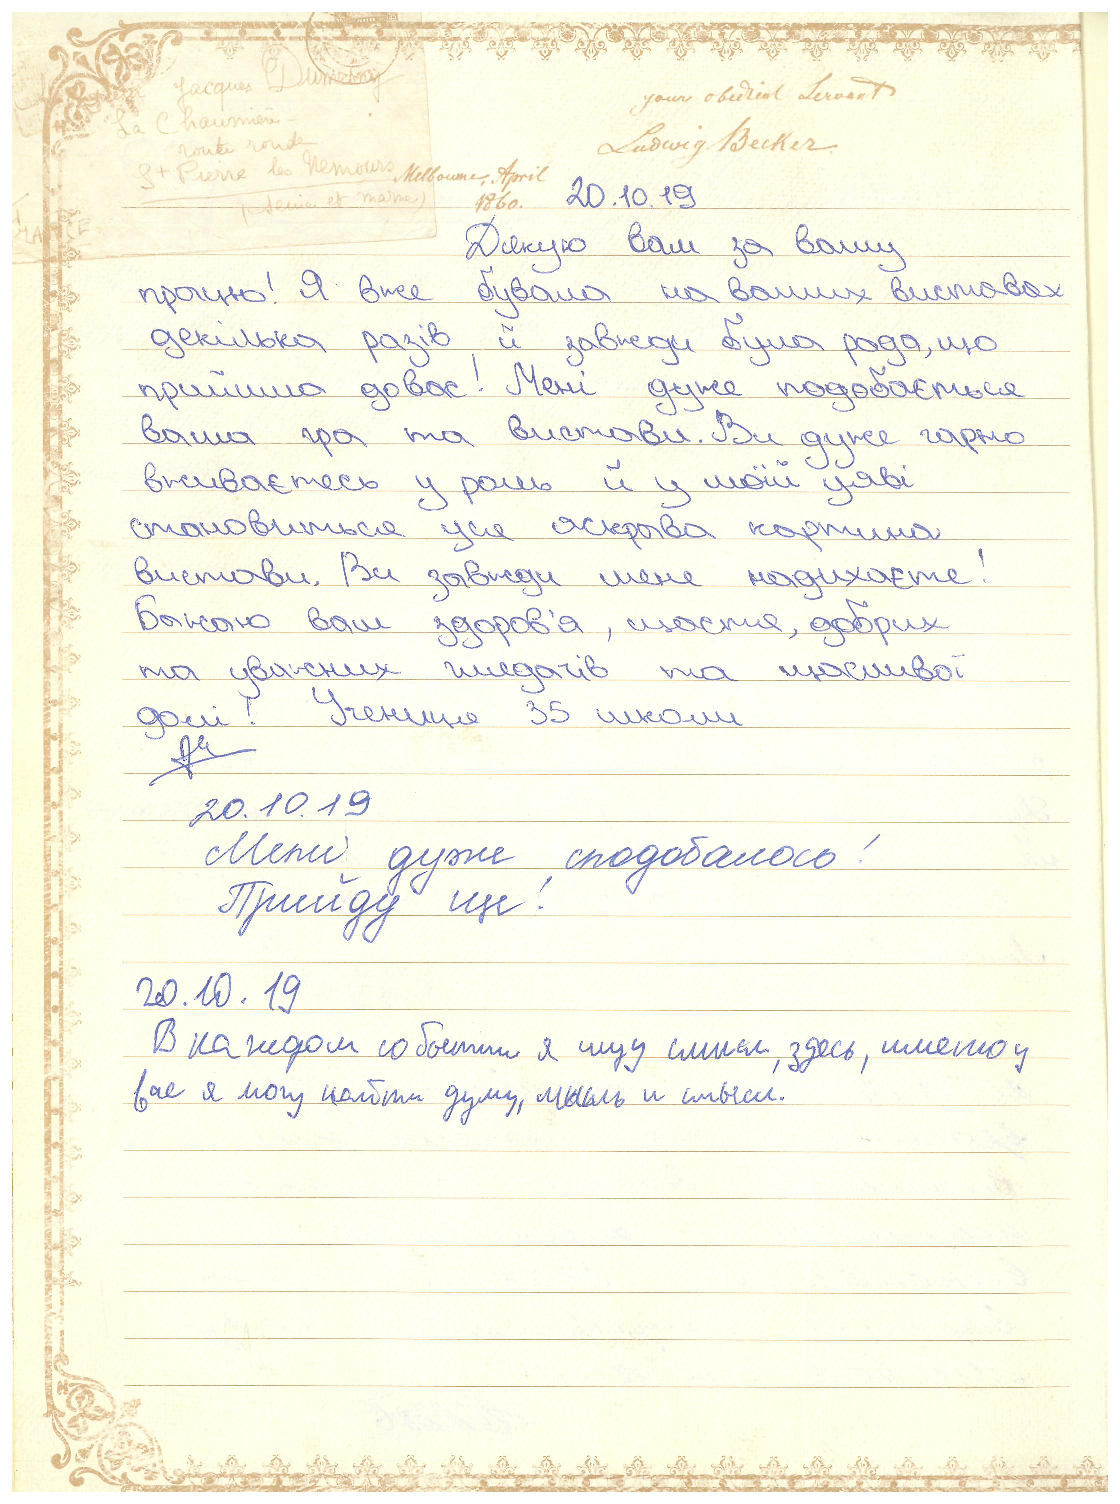 Jacques Dumesny
La Chaumière
route ronde
St Pierre les Nemours
(Seine et marne)
your obedient Servant
Ludwig Becker
Melbourne, April
1860.
20.10.19
Дякую вам за вашу
працю! Я вже бувала на ваших виставах
декілька разів й завжди була рада, що
прийшла до вас! Мені дуже подобається
ваша гра та вистави. Ви дуже гарно
вживаєтесь у роль й у моїй уяві
становиться уся яскрава картина
вистави. Ви завжди мене надихаєте!
Бажаю вам здоров'я, щастя, добрих
та уважних глядачів та щасливої
долі! Учениця 35 школи
20.10.19
Мені дуже сподобалось!
Прийду ще!
20.10.19
В каждом событии я ищу смысл, здесь, именно у
вас я могу найти душу, мысль и смысл.